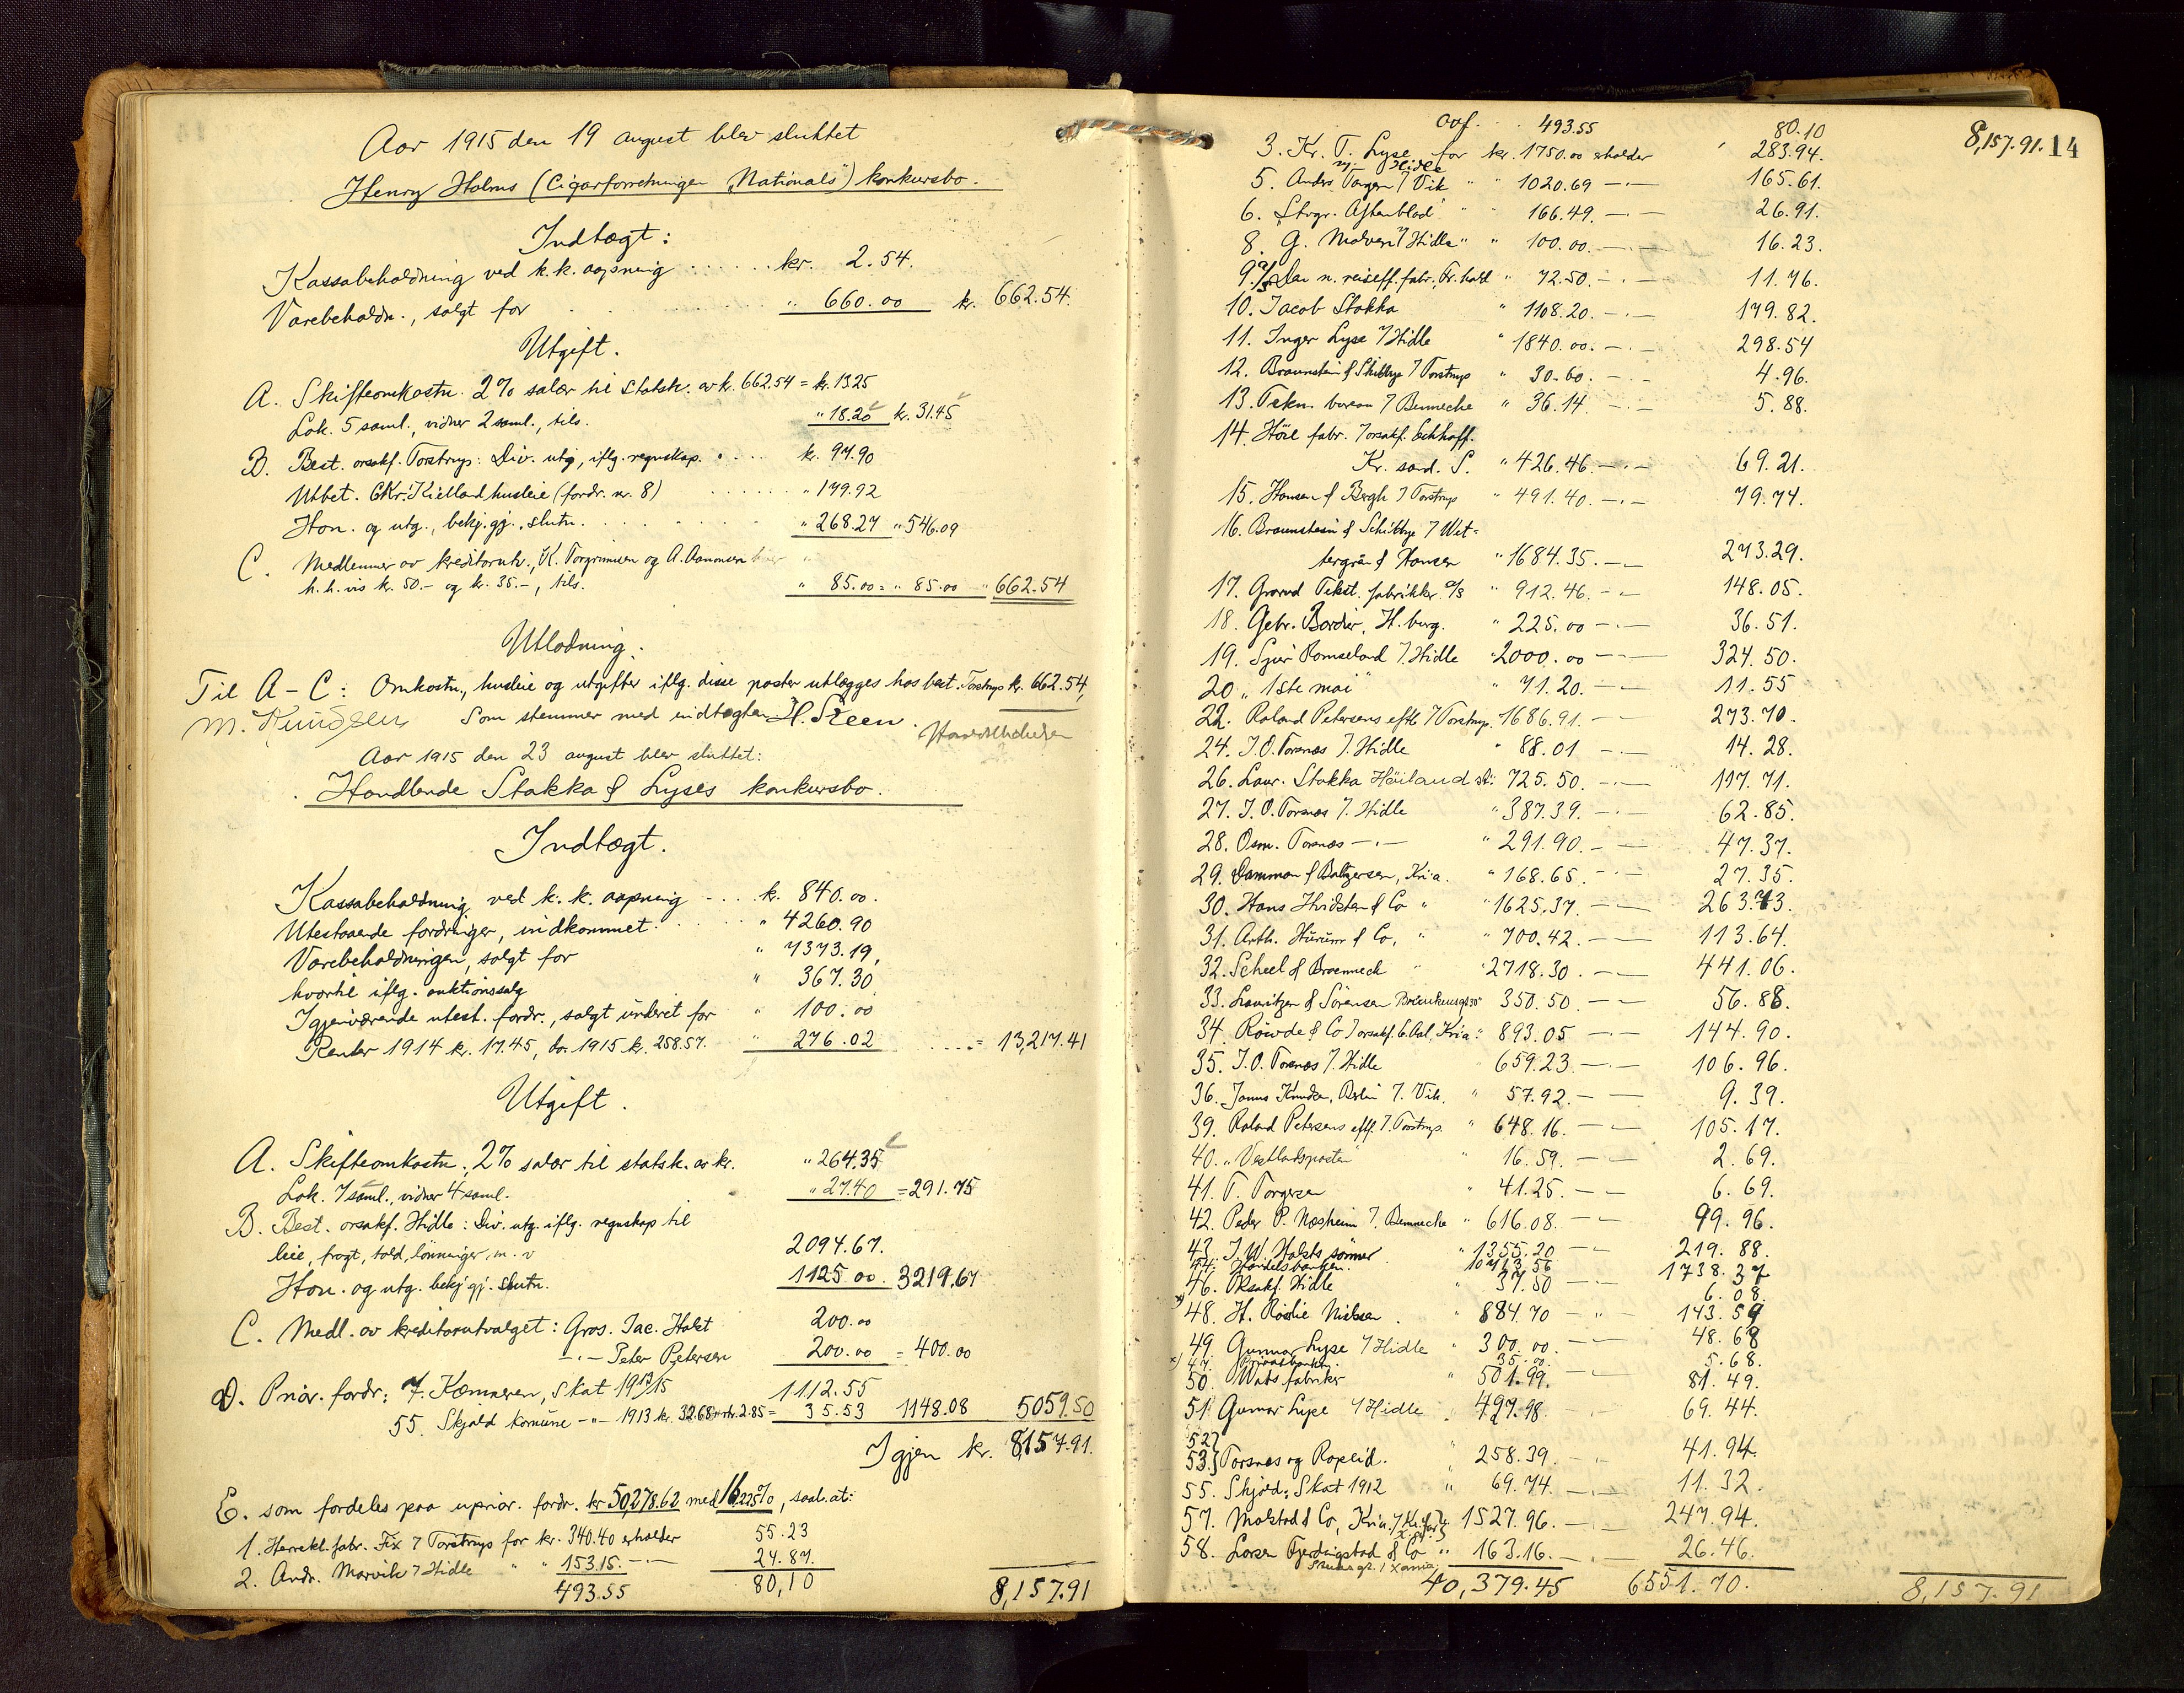 Aar 1915 den 19 august blev sluttet
Henry Holms (Cigarforretningen "Nationals") konkursbo.
Indtægt:
Kassabeholdning ved k.k. aapning ...... kr. 2.54.
Varebeholdn., solgt for " 660.00 kr. 662.54.
Utgift.
A. Skifteomkostn. 2% salær til statsk. av kr. 662.54 = kr. 13.25
Lok. 5 saml., vidner 2 saml., tils. " 18.20 kr. 31.45
B. Best. orsakf. Torstrup: Div. utg., iflg. regnskap .... kr. 97.90
Utbet. Chr. Kielland husleie (fordr. nr. 8) ...... " 179.92
Hon. og utg., bekj.gj., slutn. ...... " 268.27 " 546.09
C. Medlemmer av kreditorutv., K. Torgrimsen og A. Aamonsen
h.h.vis kr. 50.- og kr. 35.-, tils. " 85.00 = " 85.00 " 662.54
Utlodning.
Til A - C: Omkostn., husleie og utgifter iflg. disse poster utlægges hos best. Torstrup kr. 662.54,
M. Knudsen Som stemmer med indtægten H. Steen.
Aar 1915 den 23 august blev sluttet:
Handlende Stakka & Lyses konkursbo.
Indtægt.
Kassabeholdning ved k.k. aapning .... kr. 840.00.
Utestaaende fordringer, indkommet. " 4260.90
Varebeholdningen, solgt for " 7373.19,
hvortil iflg. auktionssalg " 367.30
Igjenværende utest. fordr., solgt underet for " 100.00
Renter 1914 kr. 17.45, do. 1915 kr. 258.57. " 276.02 .... = 13,217.41
Utgift.
A. Skifteomkostn. 2% salær til statsk. av kr. " 264.35
Lok. 7 saml., vidner 4 saml. " 27.40 = 291.75
B. Best. orsakf. Hidle: Div. utg. iflg. regnskap til
leie, fragt, told, lønninger, m.v 2094.67.
Hon. og utg. bekj.gj. slutn. 1125.00. 3219.67
C. Medl. av kreditorutvalget: Gros. Jac. Holst 200.00
-"- Peter Petersen 200.00 = 400.00
D. Prior. fordr: 7. Kæmneren, skat 1914/15 1112.55
55. Skjold komune -"- 1913 kr. 32.68 + rtr. 2.85 = 35.53 1148.08 5059.50
Igjen kr. 8,157.91.
E. som fordeles paa uprior. fordr. kr 50,278.62 med 16.225%, saal. at:
1. Herrekl. fabr. Fix 7 Torstrup for kr. 340.40 erholder 55.23
2. Andr. Marvik 7 Hidle " " 153.15. -"- 24.87.
493.55 80,10 8,157.91
Ovf. 493.55 80.10 8,157.91. 14
3. Kr. T. Lyse for kr. 1750.00 erholder 283.94.
5. Anders Torgersen 7 Vik " " 1020.69 -"- 165.61.
6. Stvgr. Aftenblad " " 166.49. -"- 26.91.
8. G. Molven 7 Hidle " " 100.00. -"- 16.23.
9. A/S Den n. reiseff. fabr., Fr.hald " 72.50. -"- 11.76.
10. Jacob Stakka " 1108.20. -"- 179.82.
11. Inger Lyse 7 Hidle " 1840.00. -"- 298.54
12. Braunstein & Skibbye 7 Torstrup " 30.60. -"- 4.96.
13. Tekn. bureau 7 Benneche " 36.14. -"- 5.88.
14. Høie fabr. 7 orsakf. Eckhoff.
Kr. sand. S. " 426.46. -"- 69.21.
15. Hansen & Bergh 7 Torstrup " 491.40. -"- 79.74.
16. Braunstein & Schibbye 7 Wet-
tergrén & Hansen " 1684.35. -"- 273.29.
17. Grorud Tekst. fabrikker A/S " 912.46. -"- 148.05.
18. Gebr. Bardier, H.burg. " 225.00 -"- 36.51.
19. Sjur Romseland 7. Hidle " 2000.00 -"- 324.50.
20. "1ste mai" " 71.20. -"- 11.55
22. Roland Petersens eftf 7 Torstrup. 1686.91. -"- 273.70.
24. J.O. Torsnæs 7. Hidle " 88.01 -"- 14.28.
26. Laur. Stakka Høiland st: 725.50. -"- 117.71.
27. J.O. Torsnæs 7. Hidle " 387.39. -"- 62.85.
28. Osm. Torsnæs -"- " 291.90. -"- 47.37.
29. Damman & Baltzersen, Kr.ia. " 168.65. -"- 27.35.
30. Hans Hvidsten & Co " " 1625.37. -"- 263.73.
31. Arth. Hurum & Co, " " 700.42. -"- 113.64.
32. Scheel & Broenneck " " 2718.30. -"- 441.06.
33. Lauritzen & Sørensen 350.50. -"- 56.88.
34. Røwde & Co 7 orsakf. E. Aal, Kr.ia: " 893.05 -"- 144.90.
35. J.O. Torsnæs 7. Hidle 659.23. -"- 106.96.
36. Janus Knudsen, Berlin 7. Vik. " 57.92. -"- 9.39.
39. Roland Petersens eftf. 7. Torstrup. " 648.16. -"- 105.17.
40. "Vestlandsposten" " 16.59. -"- 2.69.
41. T. Torgersen " 41.25. -"- 6.69.
42. Peder P. Næsheim 7. Benneche " 616.08. -"- 99.96.
43. J.W. Holsts sønner " 1355.20 -"- 219.88.
44. Handelsbanken. 10713.56 1738.27
46. Orsakf. Hidle " 37.50 -"- 6.08.
48. H. Roslie Nielsen. " 884.70 -"- 143.59
49 Gunnar Lyse 7 Hidle " 300.00. -"- 48.68
x) 47. Privatbanken. 35.00. 5.68.
50. Wats. fabriker " 501.99. -"- 81.49.
51. Gunnar Lyse 7 Hidle " 427.98. -"- 69.44.
52}
53.} Torsnæs og Ropeid. " 258.39. -"- 41.94.
55. Skjold. Skat 1912 " 69.74. -"- 11.32.
57. Molstad & Co, Kr.ia. 1527.96. -"- 247.94.
58. Lorsen Fjerdingstad & Co " 163.16. -"- 26.46.
40,379.45 6551.70. 8,157.91